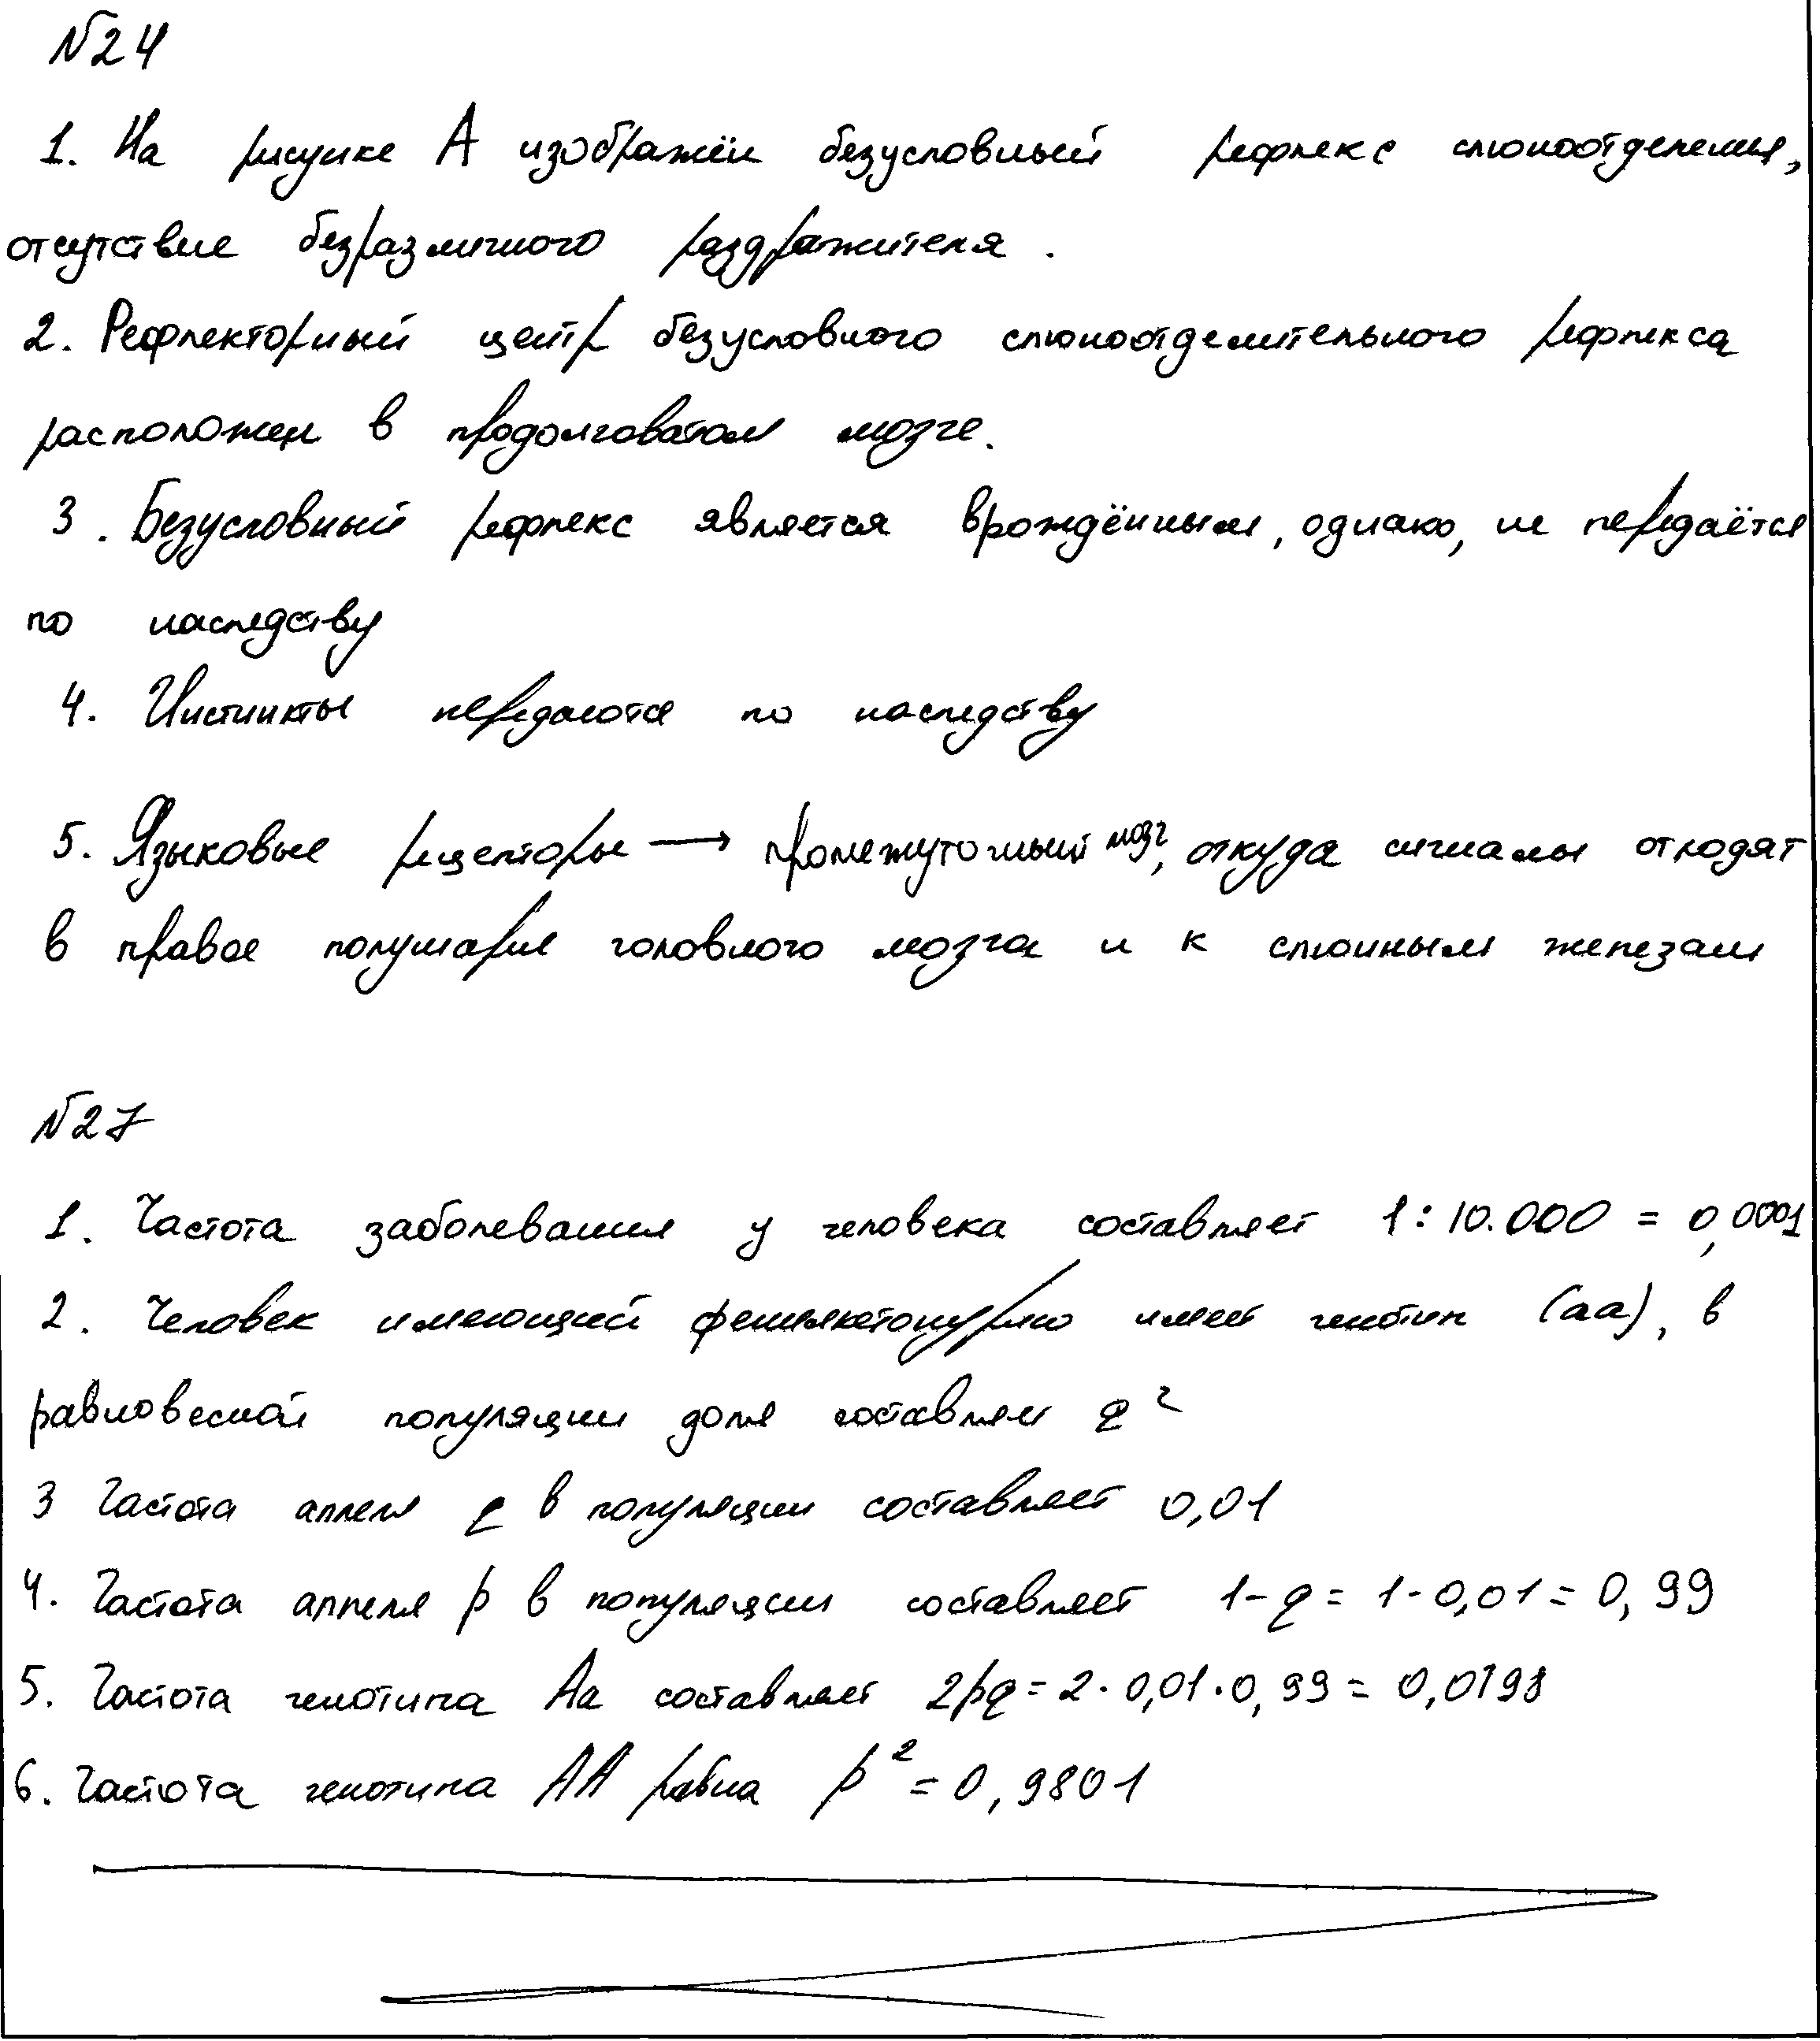 №24
1. На рисунке А изображён безусловный рефлекс слюноотделения,
отсутствие безразличного раздражителя.
2. Рефлекторный центр безусловного слюноотделительного рефлекса
расположен в продолговатом мозге.
3. Безусловный рефлекс является врождённым, однако, не передаётся
по наследству
4. Инстинкты передаются по наследству
5. Языковые рецепторы → промежуточный мозг, откуда сигналы отходят
в правое полушарие головного мозга и к слюнным железам
№27
1. Частота заболевания у человека составляет 1:10.000 = 0,0001
2. Человек имеющий фенилкетонурию имеет генотип (аа), в
равновесной популяции доля составляет q²
3 Частота аллеля q в популяции составляет 0,01
4. Частота аллеля p в популяции составляет 1-q = 1-0,01 = 0,99
5. Частота генотипа Аа составляет 2pq = 2·0,01·0,99 = 0,0198
6. Частота генотипа АА равна p² = 0,9801